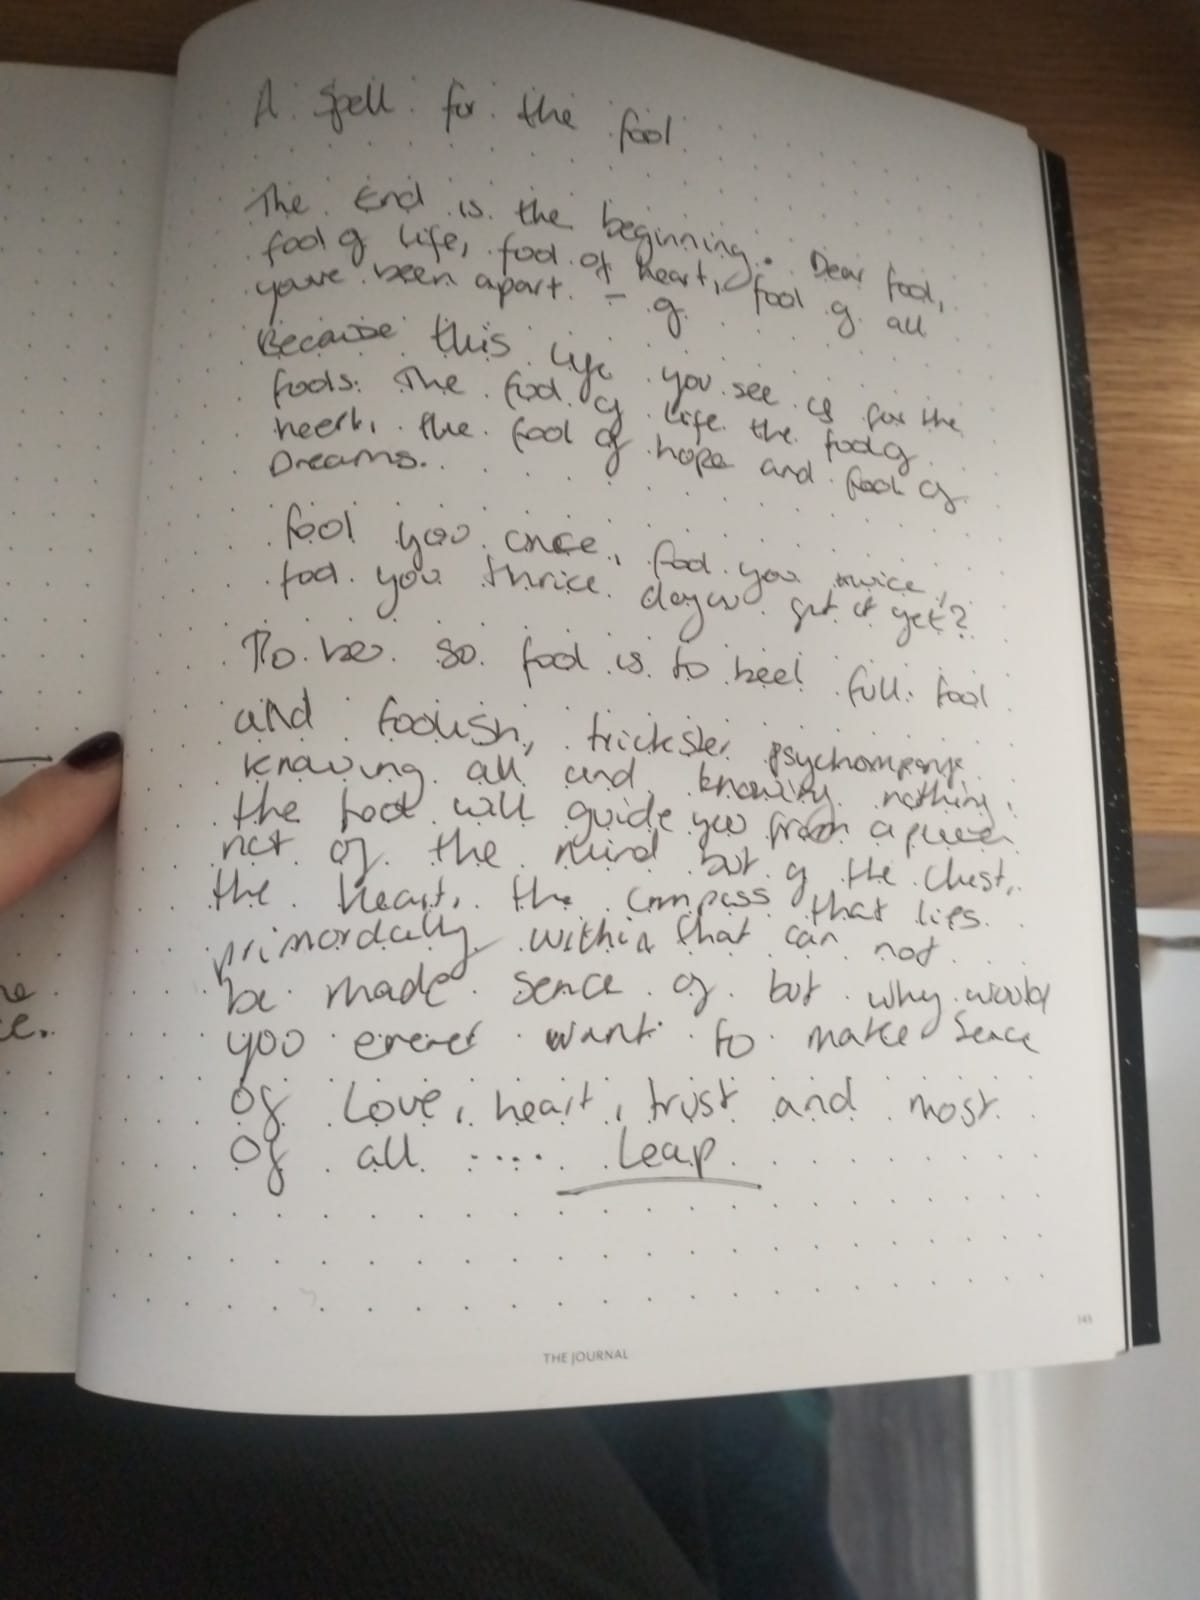 A Spell for the fool
The End is the beginning. Dear fool,
fool of life, fool of heart, fool of all
you've been apart. - g
Because this life you see is for the
fools. The fool of life the fool of
heert, the fool of hope and fool of
Dreams.
fool you once, fool you twice,
fool you thrice. do you get it yet?
To be so fool is to bee! full fool
and foolish, trickster psychompomp
knowing all and knowing nothing.
the fool will guide you from a place
not of the mind but of the chest,
the heart, the compass that lies
primordally within that can not
be made sence of but why would
you ever want to make Sence
of Love, heart, trust and most
Of all .... Leap
he
ce.
THE JOURNAL
143